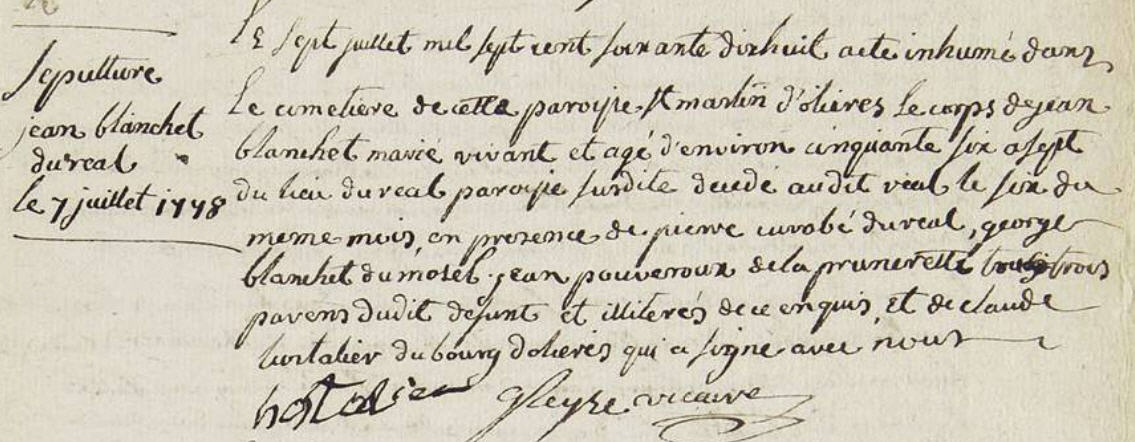 sepulture
jean blanchet
du real
le 7 juillet 1778
le sept juillet mil sept cent soixante dixhuit a ete inhumé dans
le cimetière de cette paroisse st martin d'olieres le corps de jean
blanchet marié vivant et agé d'environ cinquante six a sept
du lieu du real paroisse susdite decedé audit real le six du
meme mois, en presence de pierre du real, george
blanchet du mosel. jean pouveroux de la prunerette trois
parens dudit defunt et illiterés de ce enquis, et de claude
hostalier du bourg dolieres qui a signe avec nous
hostalier Gleyze vicaire